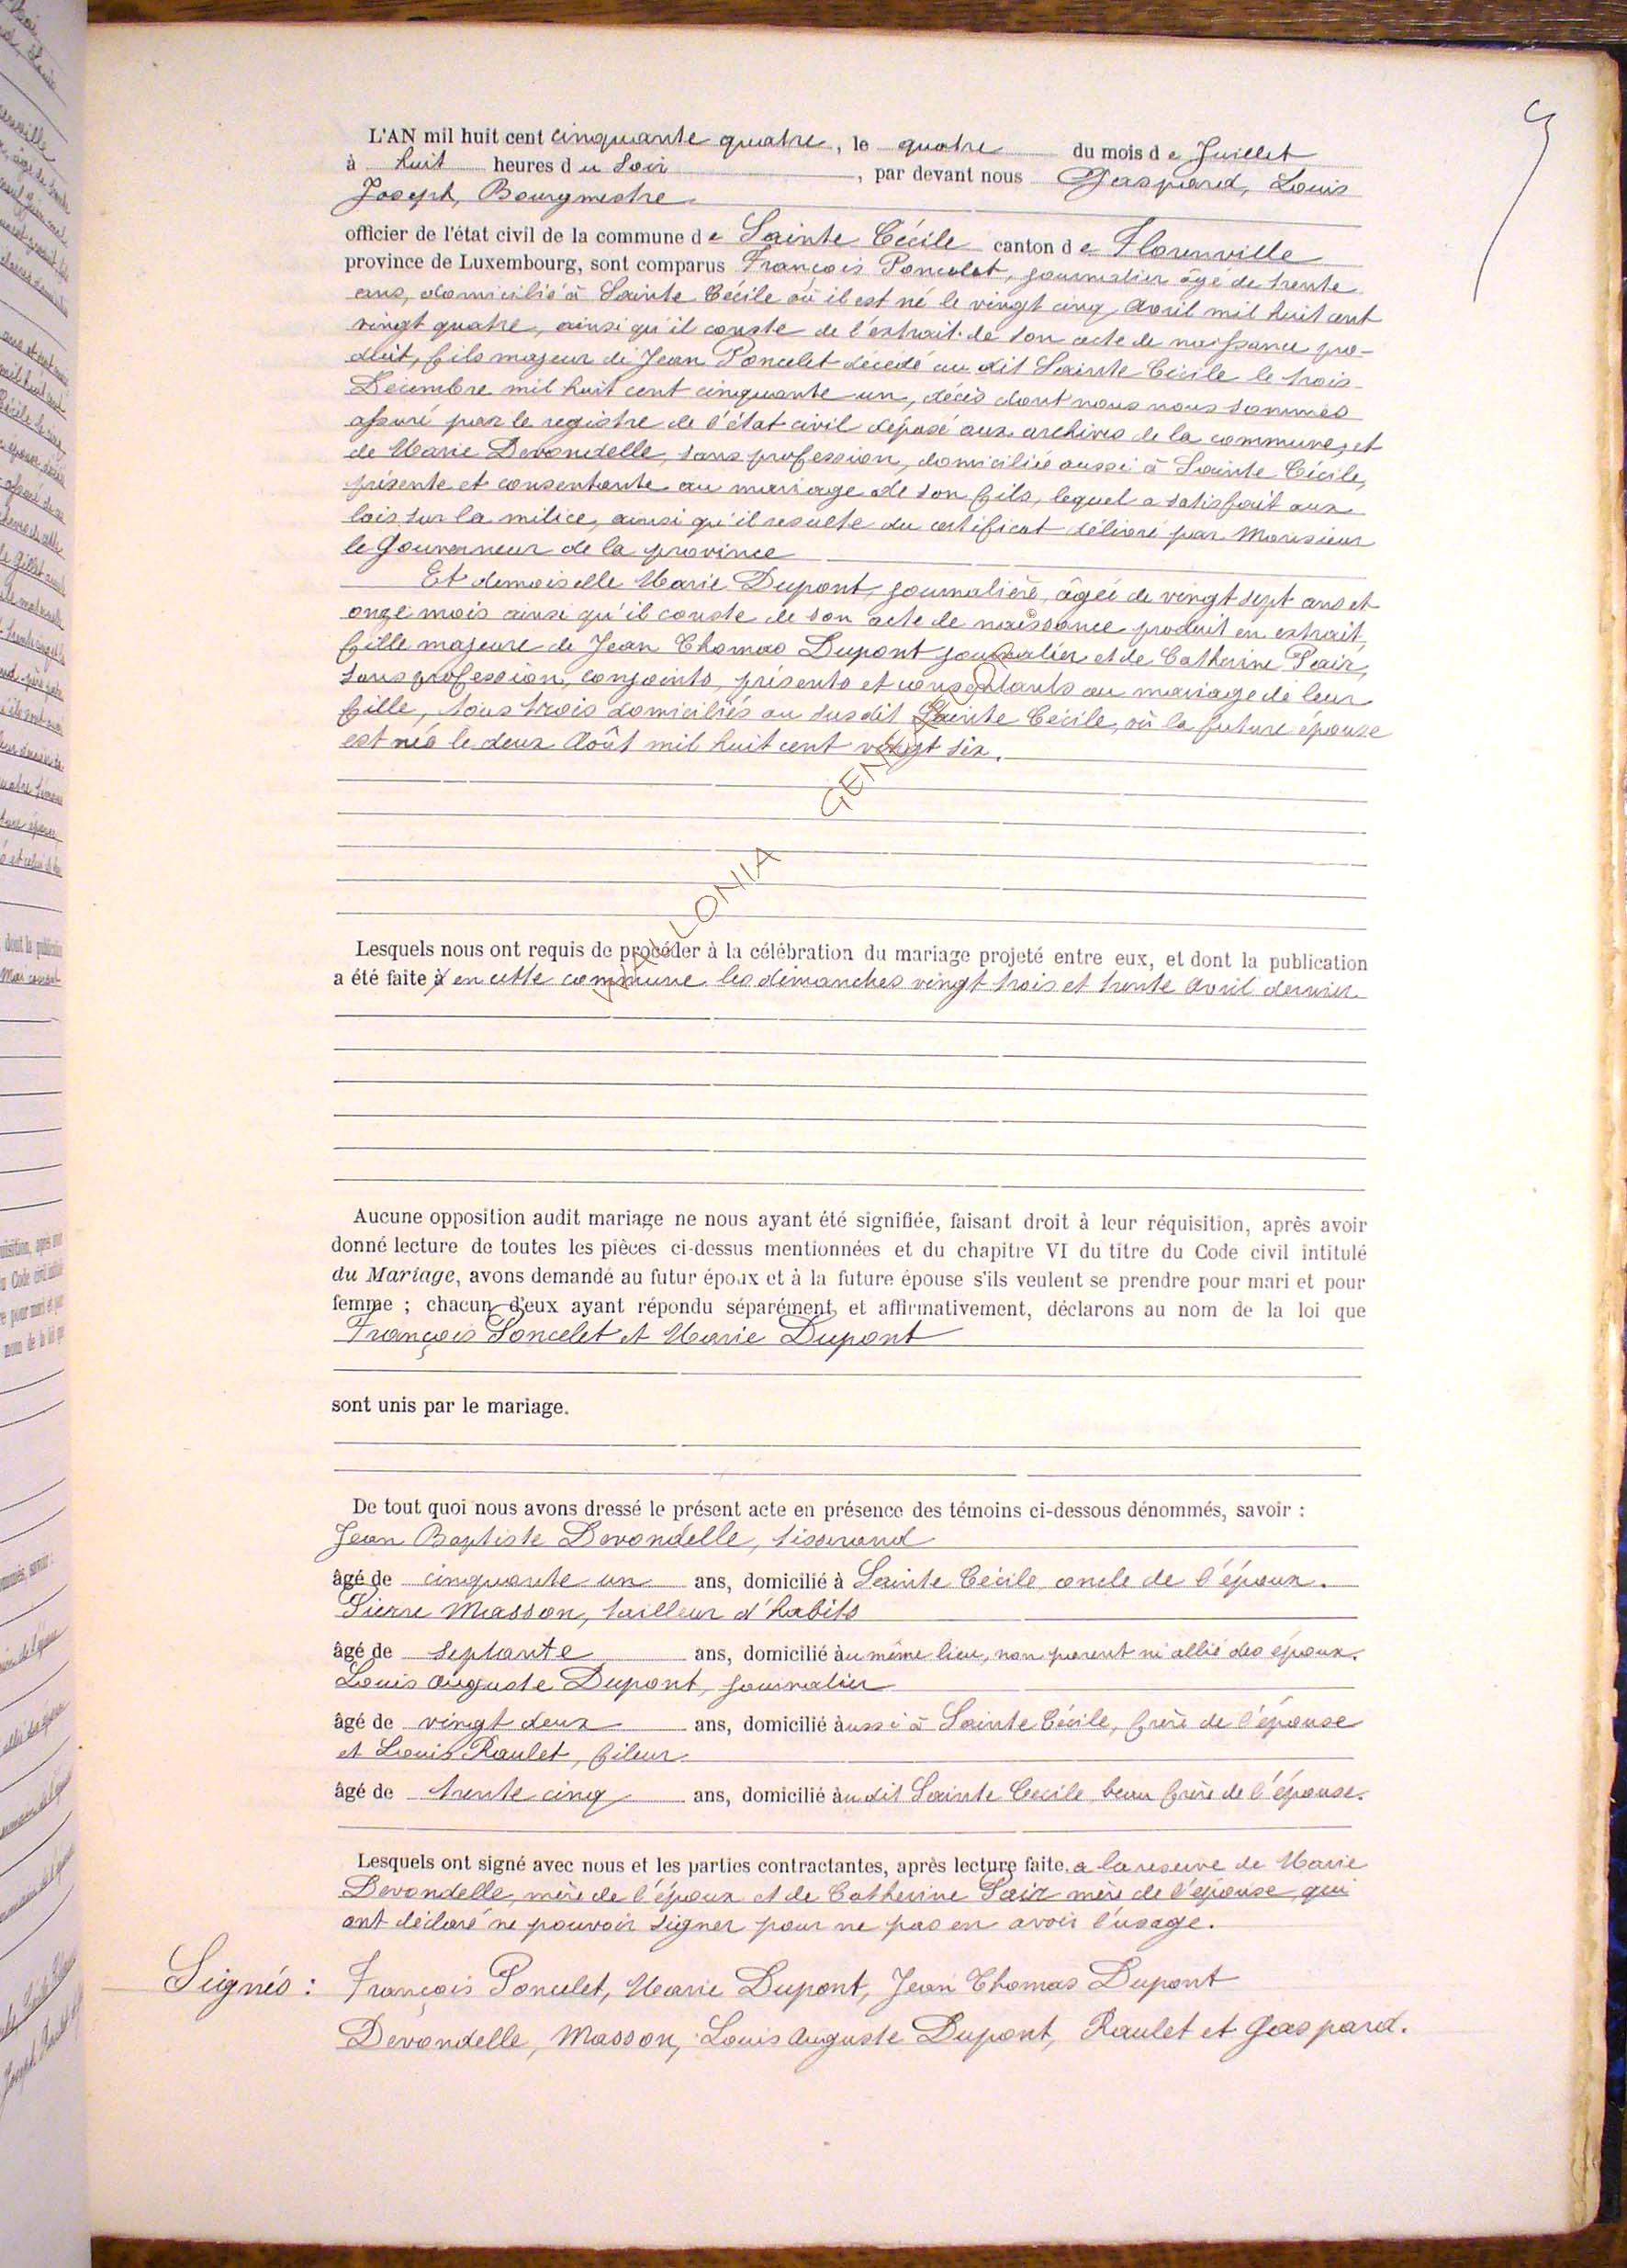 L'AN mil huit cent cinquante quatre, le quatre du mois de Juillet
à huit heures du Soir, par devant nous Gaspard, Louis
Joseph, Bourgmestre
officier de l'état civil de la commune de Sainte Cécile canton de Florenville
province de Luxembourg, sont comparus François Poncelet, journalier âgé de trente
ans, domicilié à Sainte Cécile où il est né le vingt cinq Avril mil huit cent
vingt quatre, ainsi qu'il conste de l'extrait de son acte de naissance pro-
duit, fils majeur de Jean Poncelet décédé au dit Sainte Cécile le trois
Decembre mil huit cent cinquante un, décès dont nous nous sommes
assuré par le registre de l'état civil déposé aux archives de la commune, et
de Marie Devondelle, sans profession, domiciliée aussi à Sainte Cécile,
présente et consentante au mariage de son fils, lequel a satisfait aux
lois sur la milice, ainsi qu'il resulte du certificat délivré par Monsieur
le Gouverneur de la province
Et demoiselle Marie Dupont, journalière, âgée de vingt sept ans et
onze mois ainsi qu'il conste de son acte de naissance produit en extrait,
fille majeure de Jean Thomas Dupont journalier et de Catherine Pair,
sans profession, conjoints, présents et consentants au mariage de leur
fille, tous trois domiciliés au susdit Sainte Cécile, où la future épouse
est née le deux Août mil huit cent vingt six.
Lesquels nous ont requis de procéder à la célébration du mariage projeté entre eux, et dont la publication
a été faite à en cette commune les dimanches vingt trois et trente Avril dernier
Aucune opposition audit mariage ne nous ayant été signifiée, faisant droit à leur réquisition, après avoir
donné lecture de toutes les pièces ci-dessus mentionnées et du chapitre VI du titre du Code civil intitulé
du Mariage, avons demandé au futur époux et à la future épouse s'ils veulent se prendre pour mari et pour
femme ; chacun d'eux ayant répondu séparément et affirmativement, déclarons au nom de la loi que
François Poncelet et Marie Dupont
sont unis par le mariage.
De tout quoi nous avons dressé le présent acte en présence des témoins ci-dessous dénommés, savoir :
Jean Baptiste Devondelle, tisserand
âgé de cinquante un ans, domicilié à Sainte Cécile oncle de l'époux.
Pierre Masson, tailleur d'habits
âgé de septante ans, domicilié au même lieu, non parent ni allié des époux.
Louis Auguste Dupont, journalier
âgé de vingt deux ans, domicilié aussi à Sainte Cécile, frère de l'épouse
et Louis Raulet, fileur
âgé de trente cinq ans, domicilié audit Sainte Cecile beau frère de l'épouse.
Lesquels ont signé avec nous et les parties contractantes, après lecture faite, a la reserve de Marie
Devondelle, mère de l'époux et de Catherine Pair mère de l'épouse qui
ont déclaré ne pouvoir signer pour ne pas en avoir l'usage.
Signés : François Poncelet, Marie Dupont, Jean Thomas Dupont
Devondelle, Masson, Louis Auguste Dupont, Raulet et Gaspard.